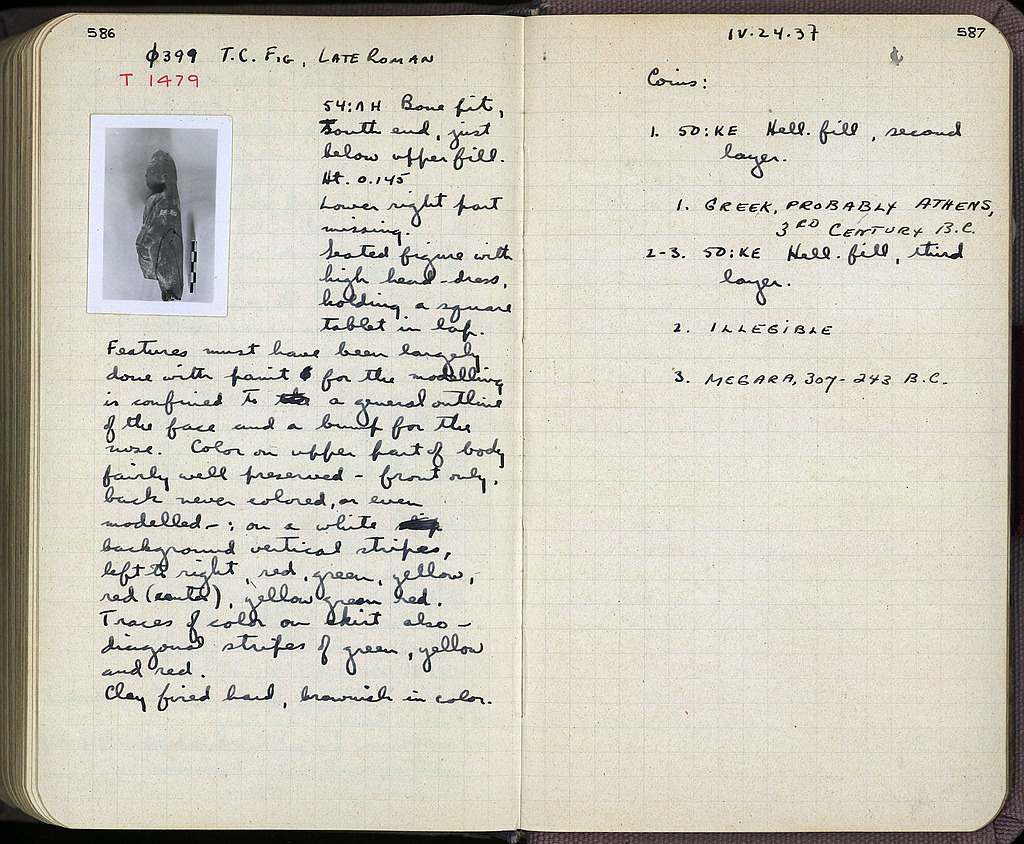 586
φ399 T.C. FIG, LATE ROMAN
T 1479
54:ΛH Bone pit,
South end, just
below upper fill.
Ht. 0.145
Lower right part
missing.
Seated figure with
high head-dress,
holding a square
tablet in lap.
Features must have been largely
done with paint for the modelling
is confined to a general outline
of the face and a bump for the
nose. Color on upper part of body
fairly well preserved - front only,
back never colored, or even
modelled - ; on a white
background vertical stripes,
left to right, red, green, yellow,
red (center), yellow green red.
Traces of color on skirt also -
diagonal stripes of green, yellow
and red.
Clay fired hard, brownish in color.
IV.24.37
587
Coins:
1. 50:KE Hell. fill, second
layer.
1. GREEK, PROBABLY ATHENS,
3RD CENTURY B.C.
2-3. 50:KE Hell. fill, third
layer.
2. ILLEGIBLE
3. MEGARA, 307-243 B.C.